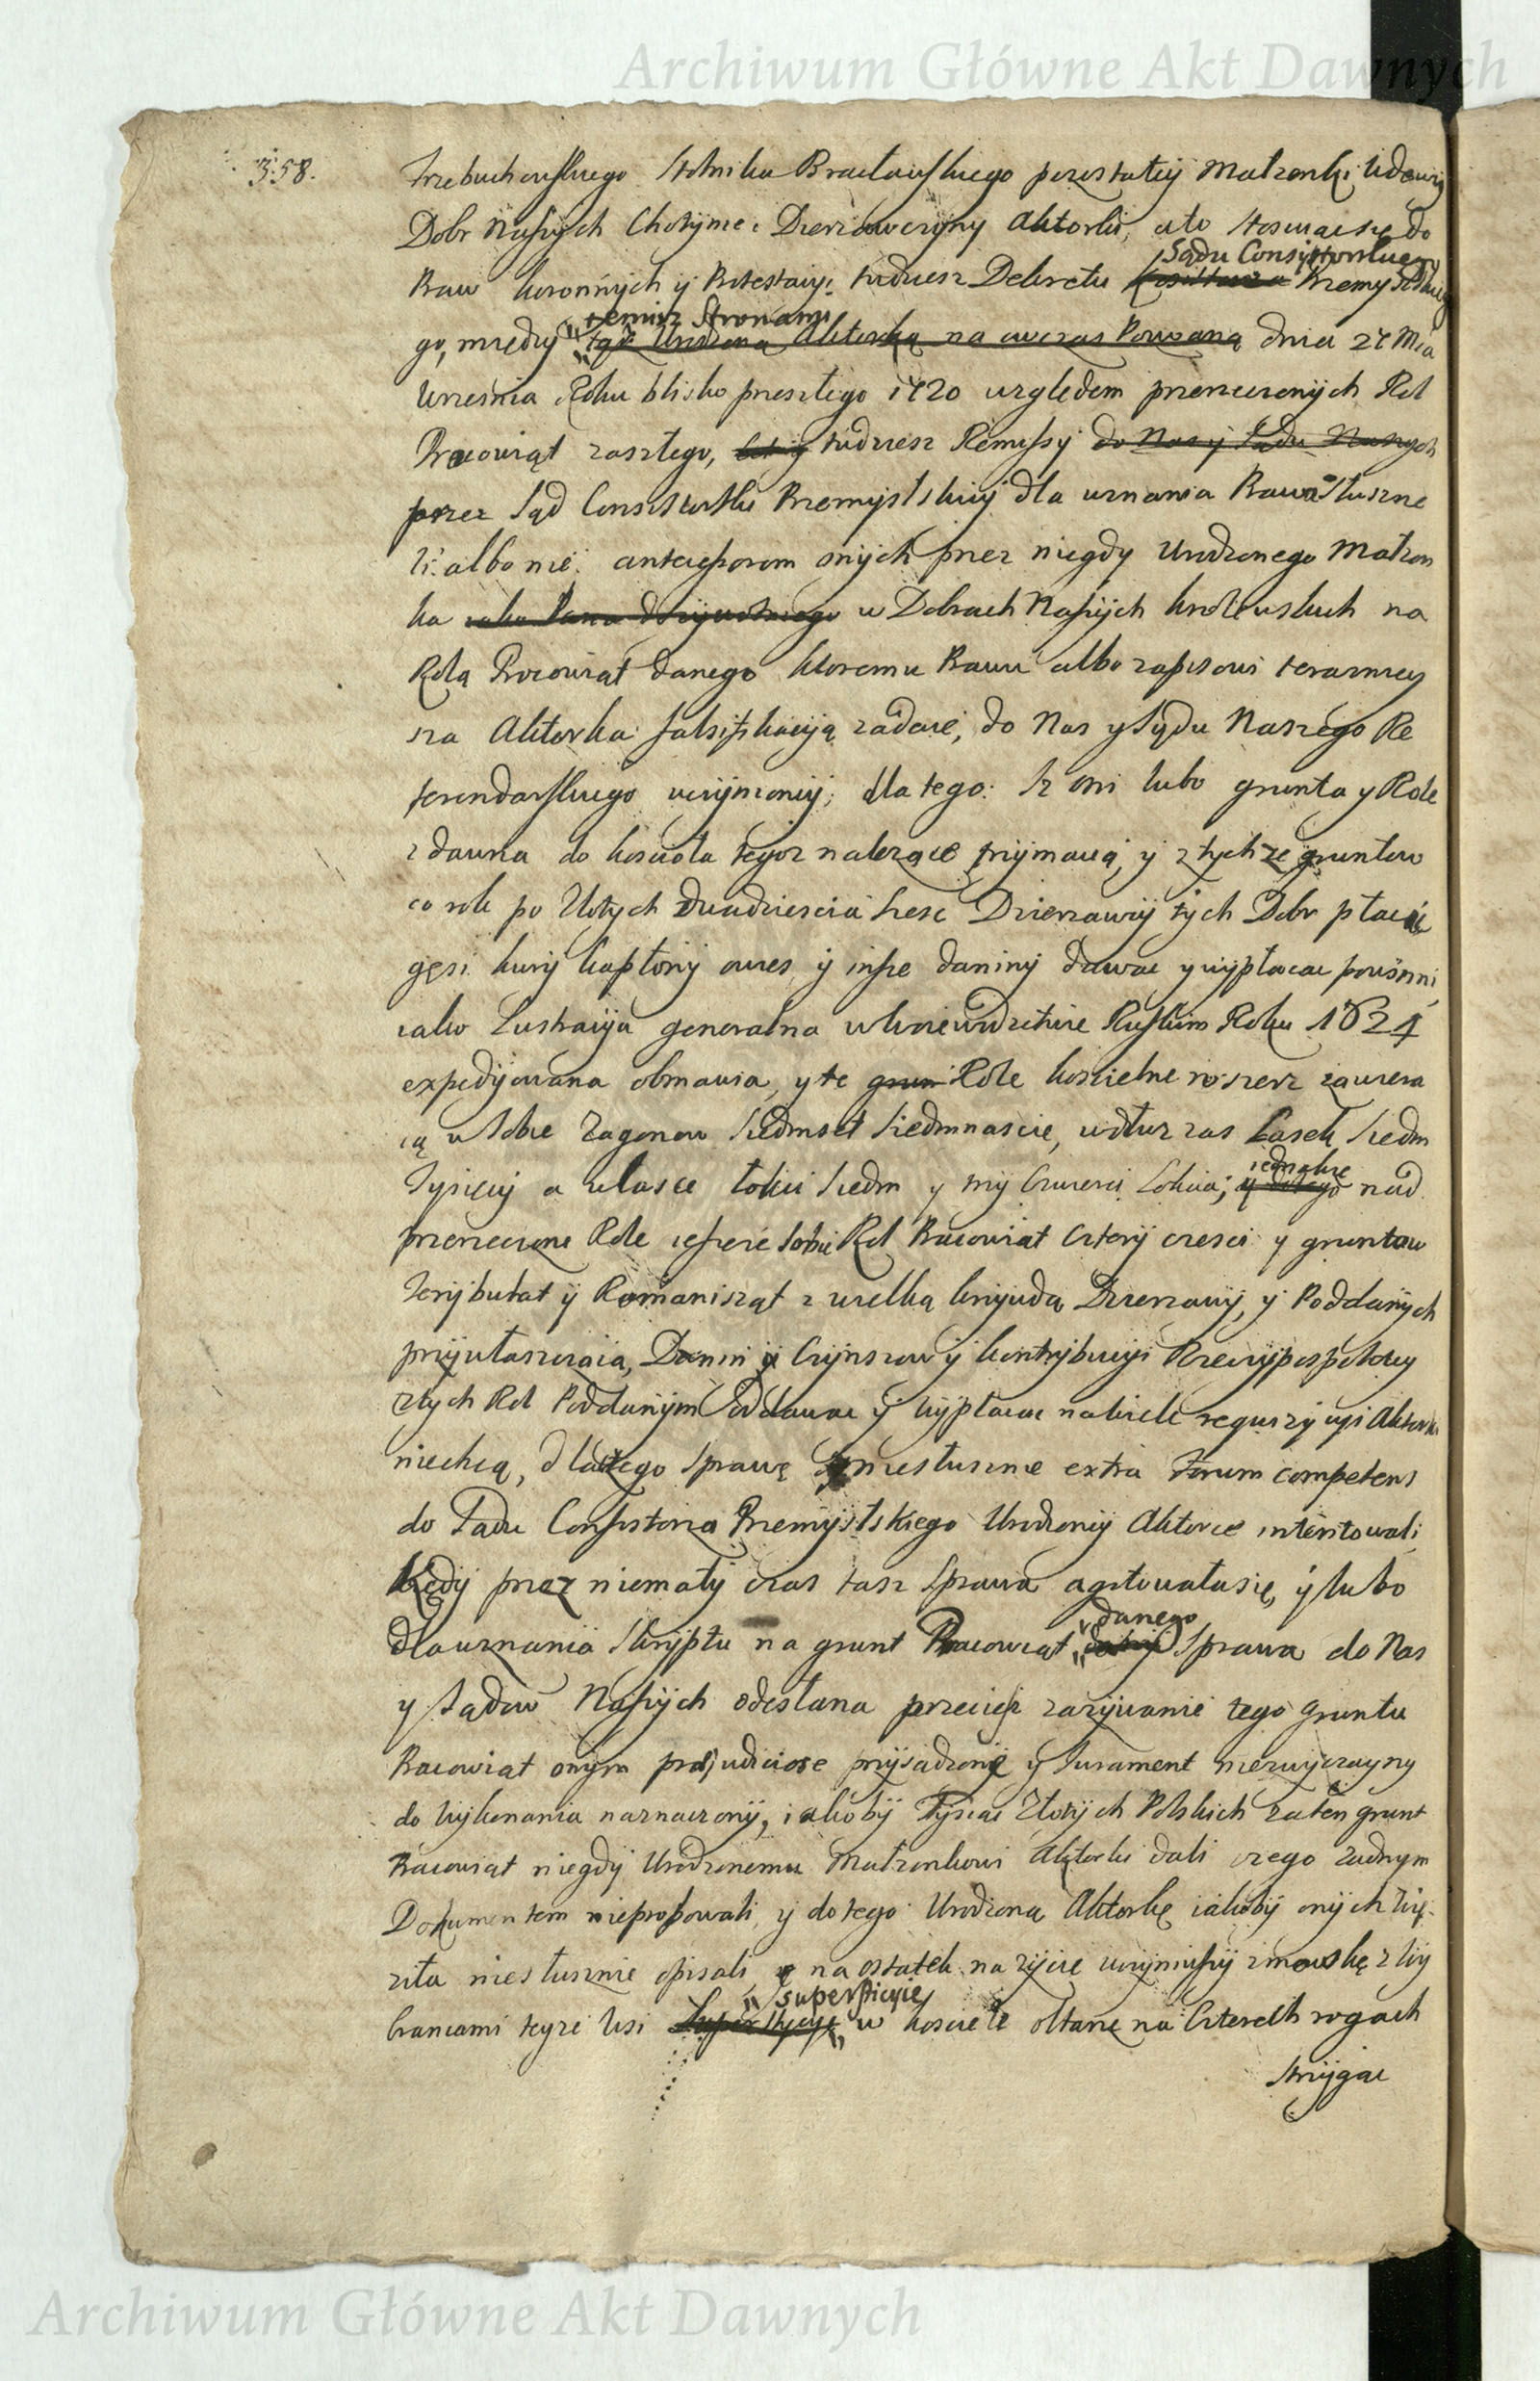 Archiwum Główne Akt Dawnych
358.
Trzebuchowskiego Stolnika Bracławskiego pozostałey Małzonki Wdowy
Dobr Naszych Chotyńie Dzierzawczyny Aktorki, a to stosuiąc się do
Sądu Consystorskiego
Praw koronnych y Protestacyi tudziesz Dekretu Przemyslskie
temisz Stronami
go, między tąż Urodzoną Aktorką na owczas Pozwaną dnia 27 Mca
Wrzesnia Roku blisko przeszłego 1720 względem przerzeczonych Rol
Pracowiąt zaszłego, tudziesz Remissy do Nas y Sądu Naszych
przez Sąd Consistorski Przemyslskiiy dla uznania Prawa słuszne
li albo nie antecessorom onych przez niegdy Urodzonego Małzon
ka w Dobrach Naszych krolewskich na
Rolą Pracowiąt danego ktoremu Prawu albo zapisowi terazniey
sza Aktorka falsifikacyią zadaie, do Nas y Sądu Naszego Re
ferendarskiego uczynioney; dla tego: Iz oni lubo grunta y Role
z dawna do koscioła tegoz nalezące trzymaią, y z tychze gruntow
co rok po Złotych dwadziescia szesc Dzierzawcy tych Dobr płacic
gęsi kury kapłony owies y insze daniny dawac y wypłacac powinni
iako Lustracyia generalna w Woiewodztwie Ruskim Roku 1621
expedyiowana obmawia, y te grun Role koscielne wszerz zawiera
ią w sobie Zagonow siedmset siedmnascie, wdłuz zas Lasek siedm
jednakze
Tysięcy a w lasce łokci siedm y trzy Czwierci Łokcia; y dotego nad
przerzeczone Role ieszcze sobie Rol Pracowiąt Cztery czesci y gruntow
Terybutat y Romanisząt z wielką krzywdą Dzierzawy, y Poddanych
przywłaszczaią, Danin y Czynszow y kontrybucyi Rzeczypospolitey
z tych Rol Poddanym Oddawac y wypłacac na wiele requizycyi Aktorki
niechcą, dlatego Sprawę niesłusznie extra Forum competens
do Sądu Consistorza Przemyslskiego Urodzoney Aktorce intentowali,
kędy przez niemały czas tasz Sprawa agitowała się, y lubo
danego
dla uznania Skryptu na grunt Pracowiąt Sprawa do Nas
y Sądow Naszych odesłana przeciesz zazywanie tego gruntu
Pracowiąt onym praejudiciose przysądzone y Jurament niezwyczayny
do wykonania naznaczony, iakoby Tysiąc Złotych Polskich za ten grunt
Pracowiąt niegdy Urodzonemu Małzonkowi Aktorki dali czego zadnym
Dokumentem nieprobowali, y do tego Urodzoną Aktorkę iakoby onych wię-
ziła niesłusznie opisali, y na ostatek na zycie uczyniwszy zmowskę z wy
superstycyię
brancami teyze Wsi w kosciele ołtarze na Czterech rogach
strzygac
Archiwum Główne Akt Dawnych